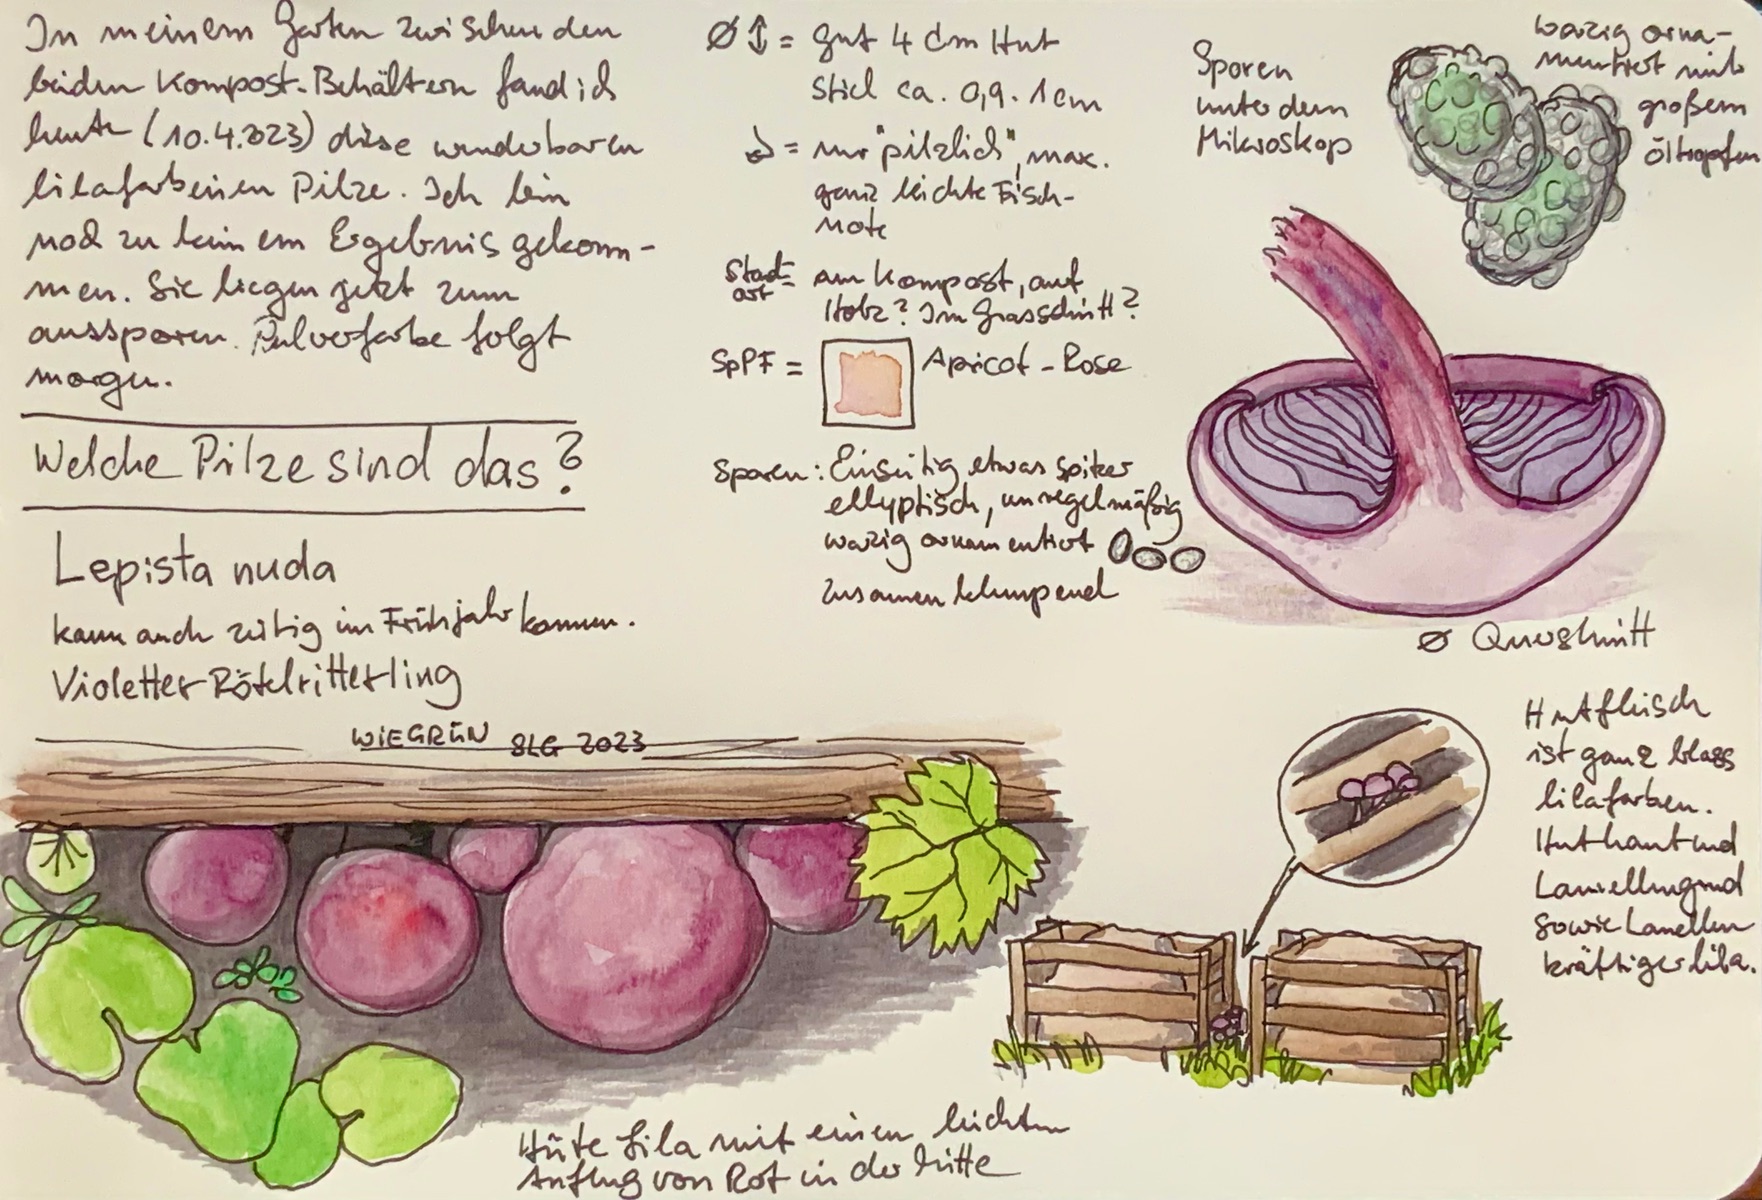 In meinem Garten zwischen den
beiden Kompost-Behältern fand ich
heute (10.4.2023) diese wunderbaren
lilafarbenen Pilze. Ich bin
noch zu keinem Ergebnis gekom-
men. Sie liegen jetzt zum
aussporen. Pulverfarbe folgt
morgen.
Welche Pilze sind das?
Lepista nuda
kann auch zeitig im Frühjahr kommen.
Violetter Rötelritterling
WIEGRÜN SLG 2023
Ø ↕ = gut 4 cm Hut
Stiel ca. 0,9 - 1cm
= nur "pilzlich", max.
ganz leichte Fisch-
note
Stand-
ort = am Kompost, auf
Holz? Im Grasschnitt?
SpPF = Apricot - Rose
Sporen: Einseitig etwas spitzer
ellyptisch, unregelmäßig
warzig ornamentiert
zusammen klumpend
Sporen
unter dem
Mikroskop
warzig orna-
mentiert mit
großem
Öltropfen
Ø Querschnitt
Hutfleisch
ist ganz blass
lilafarben.
Huthaut und
Lamellengrund
sowie Lamellen
kräftiger lila.
Hüte Lila mit einem leichten
Anflug von Rot in der Mitte